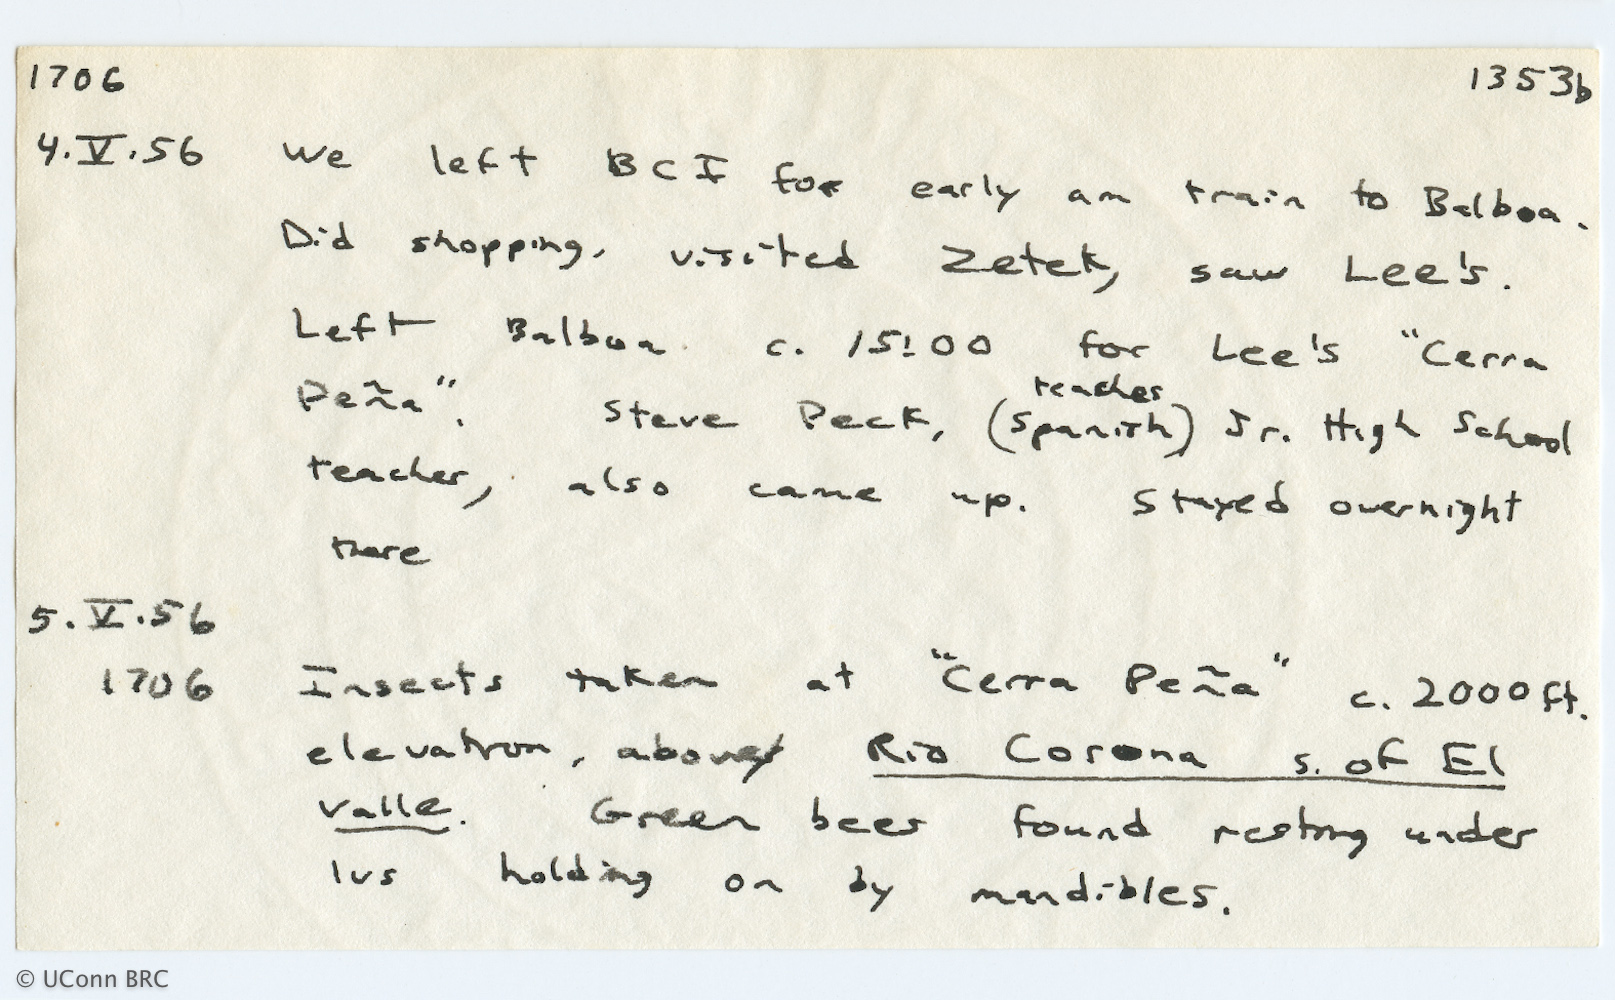 1706 1353b
4.V.56 We left BCI for early am train to Balboa.
Did shopping, visited Zetek, saw Lee's.
Left Balboa c. 15:00 for Lee's "Cerra
Peña". Steve Peck, (Spanish) teacher Jr. High School
teacher, also came up. Stayed overnight
there
5.V.56
1706 Insects taken at "Cerra Peña" c. 2000 ft.
elevation, above Rio Corona s. of El
Valle. Green bees found resting under
lvs holding on by mandibles.
© UConn BRC